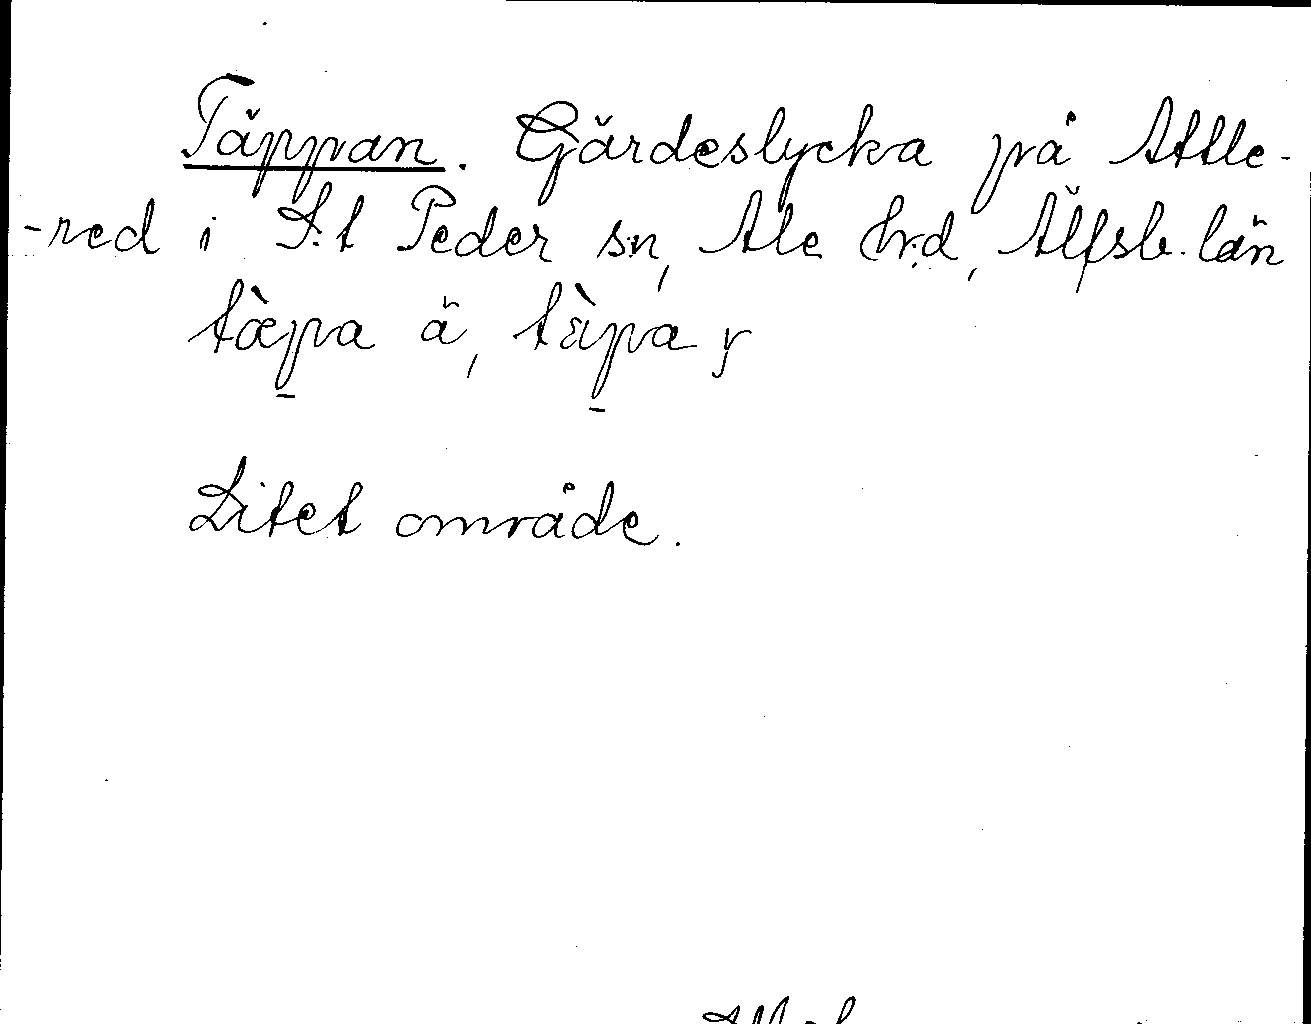 Täppan. Gärdeslycka på Attle-
-red i S:t Peder sn, Ale hrd, Älfsb. län
tæ̀pa ä, tὲpa y
Litet område.